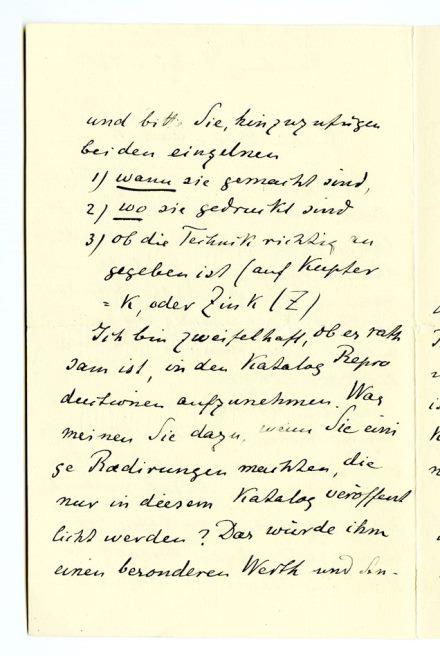 und bitte Sie, hinzuzufügen
bei den einzelnen
1) wann sie gemacht sind,
2) wo sie gedruckt sind
3) ob die Technik richtig an
gegeben ist (auf Kupfer
= K, oder Zink (Z)
Ich bin zweifelhaft, ob es rath
sam ist, in den Katalog Repro
ductionen aufzunehmen. Was
meinen Sie dazu, wenn Sie eini
ge Radirungen machten, die
nur in diesem Katalog veröffent
licht werden? Das würde ihm
einen besonderen Werth und